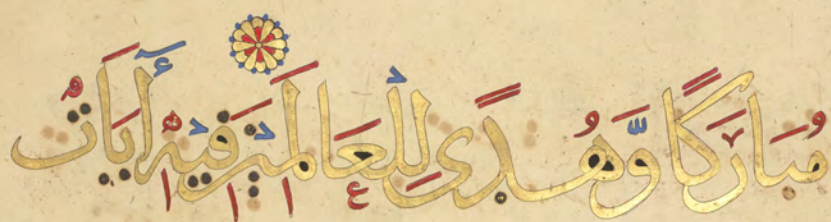 مُبَارَكًا وَّهُدًى لِّلْعَالَمِيْنَ فِيْهِ أٓيَاتٌ